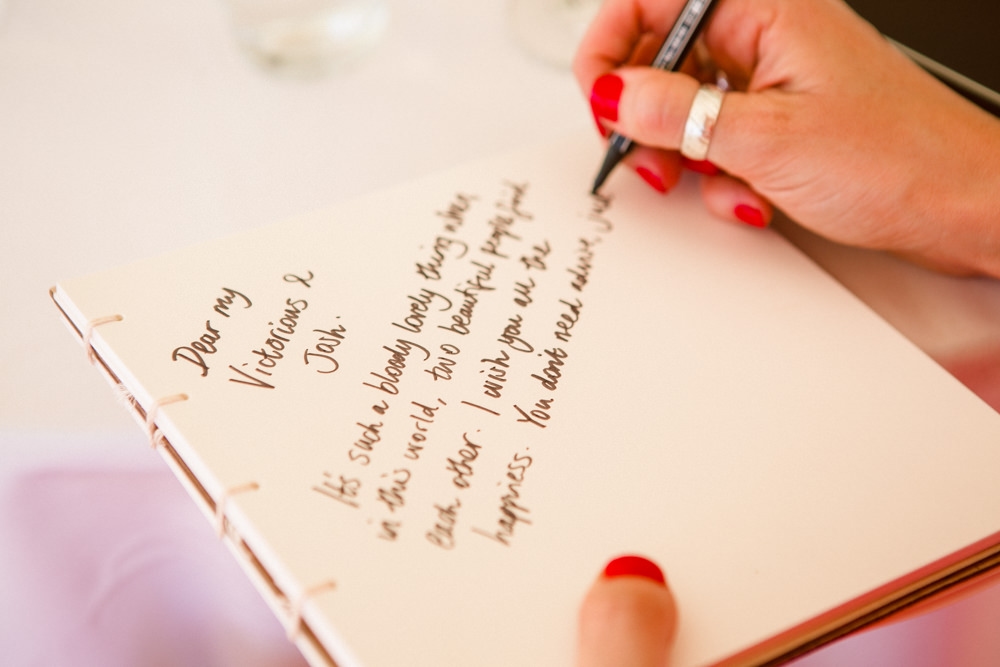 Dear my
Victorious &
Josh.
It's such a bloody lovely thing when,
in this world, two beautiful people find
each other. I wish you all the
happiness. You don't need advice, just